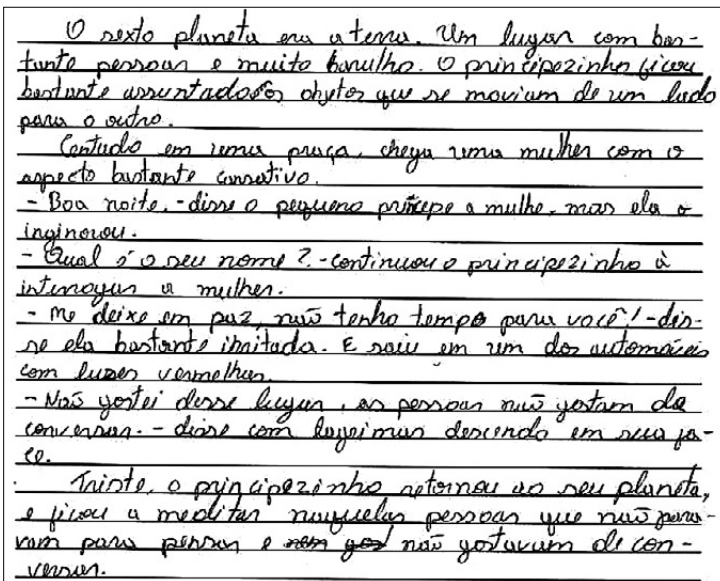 O sexto planeta era a terra. Um lugar com bas-
tante pessoas e muito barulho. O principezinho ficou
bastante assustado os objetos que se moviam de um lado
para o outro.
Contudo em uma praça, chega uma mulher com o
aspecto bastante cansativo.
- Boa noite. - disse o pequeno príncipe a mulhe. mas ela o
inginorou.
- Qual é o seu nome ? - continuou o principezinho à
interrogar a mulher.
- me deixe em paz, não tenho tempo para você! - dis-
se ela bastante irritada. E saiu em um dos automóveis
com luzes vermelhas.
- Não gostei desse lugar, as pessoas não gostam de
conversar. - disse com lagrimas descendo em sua fa-
ce.
Triste, o principezinho retornou ao seu planeta,
e ficou a meditar naquelas pessoas que não para-
vam para pensar e não gostavam de con-
versar.